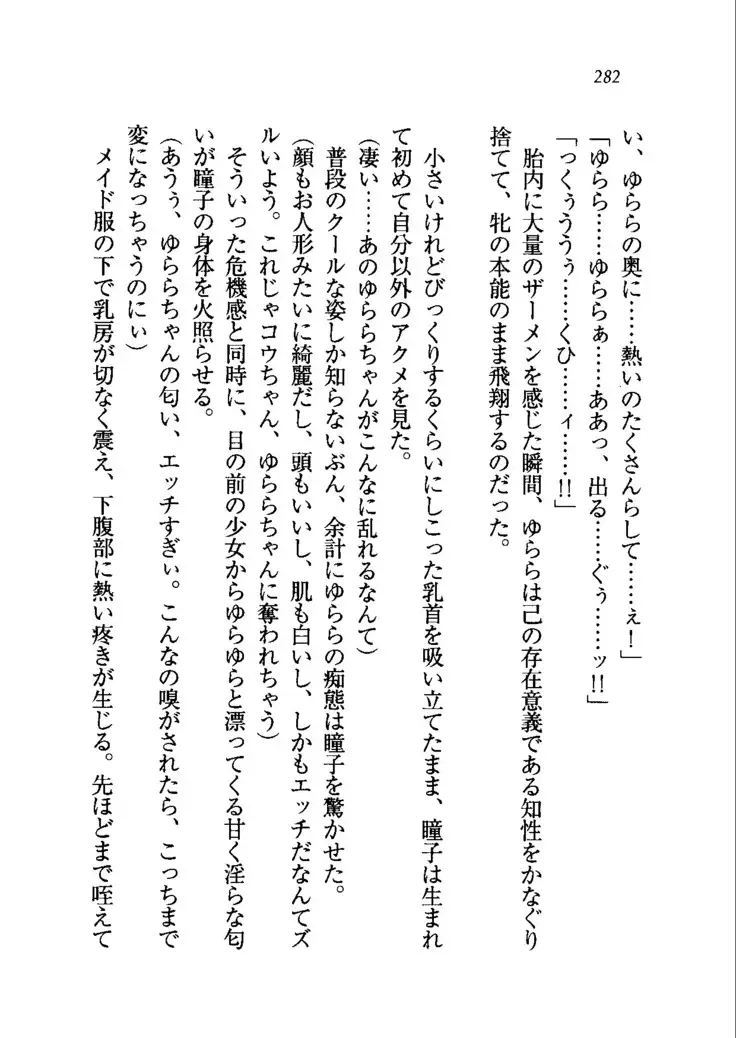 282
い、ゆららの奥に……熱いのたくさんらして……ぇ！」
「ゆらら……ゆららぁ……ああっ、出る……ぐぅ……ッ!!」
「っくぅううぅ……くひ……ィ……!!」
胎内に大量のザーメンを感じた瞬間、ゆららは己の存在意義である知性をかなぐり
捨てて、牝の本能のまま飛翔するのだった。
小さいけれどびっくりするくらいにしこった乳首を吸い立てたまま、瞳子は生まれ
て初めて自分以外のアクメを見た。
（凄い……あのゆららちゃんがこんなに乱れるなんて）
普段のクールな姿しか知らないぶん、余計にゆららの痴態は瞳子を驚かせた。
（顔もお人形みたいに綺麗だし、頭もいいし、肌も白いし、しかもエッチだなんてズ
ルいよう。これじゃコウちゃん、ゆららちゃんに奪われちゃう）
そういった危機感と同時に、目の前の少女からゆらゆらと漂ってくる甘く淫らな匂
いが瞳子の身体を火照らせる。
（あうぅ、ゆららちゃんの匂い、エッチすぎぃ。こんなの嗅がされたら、こっちまで
変になっちゃうのにぃ）
メイド服の下で乳房が切なく震え、下腹部に熱い疼きが生じる。先ほどまで咥えて